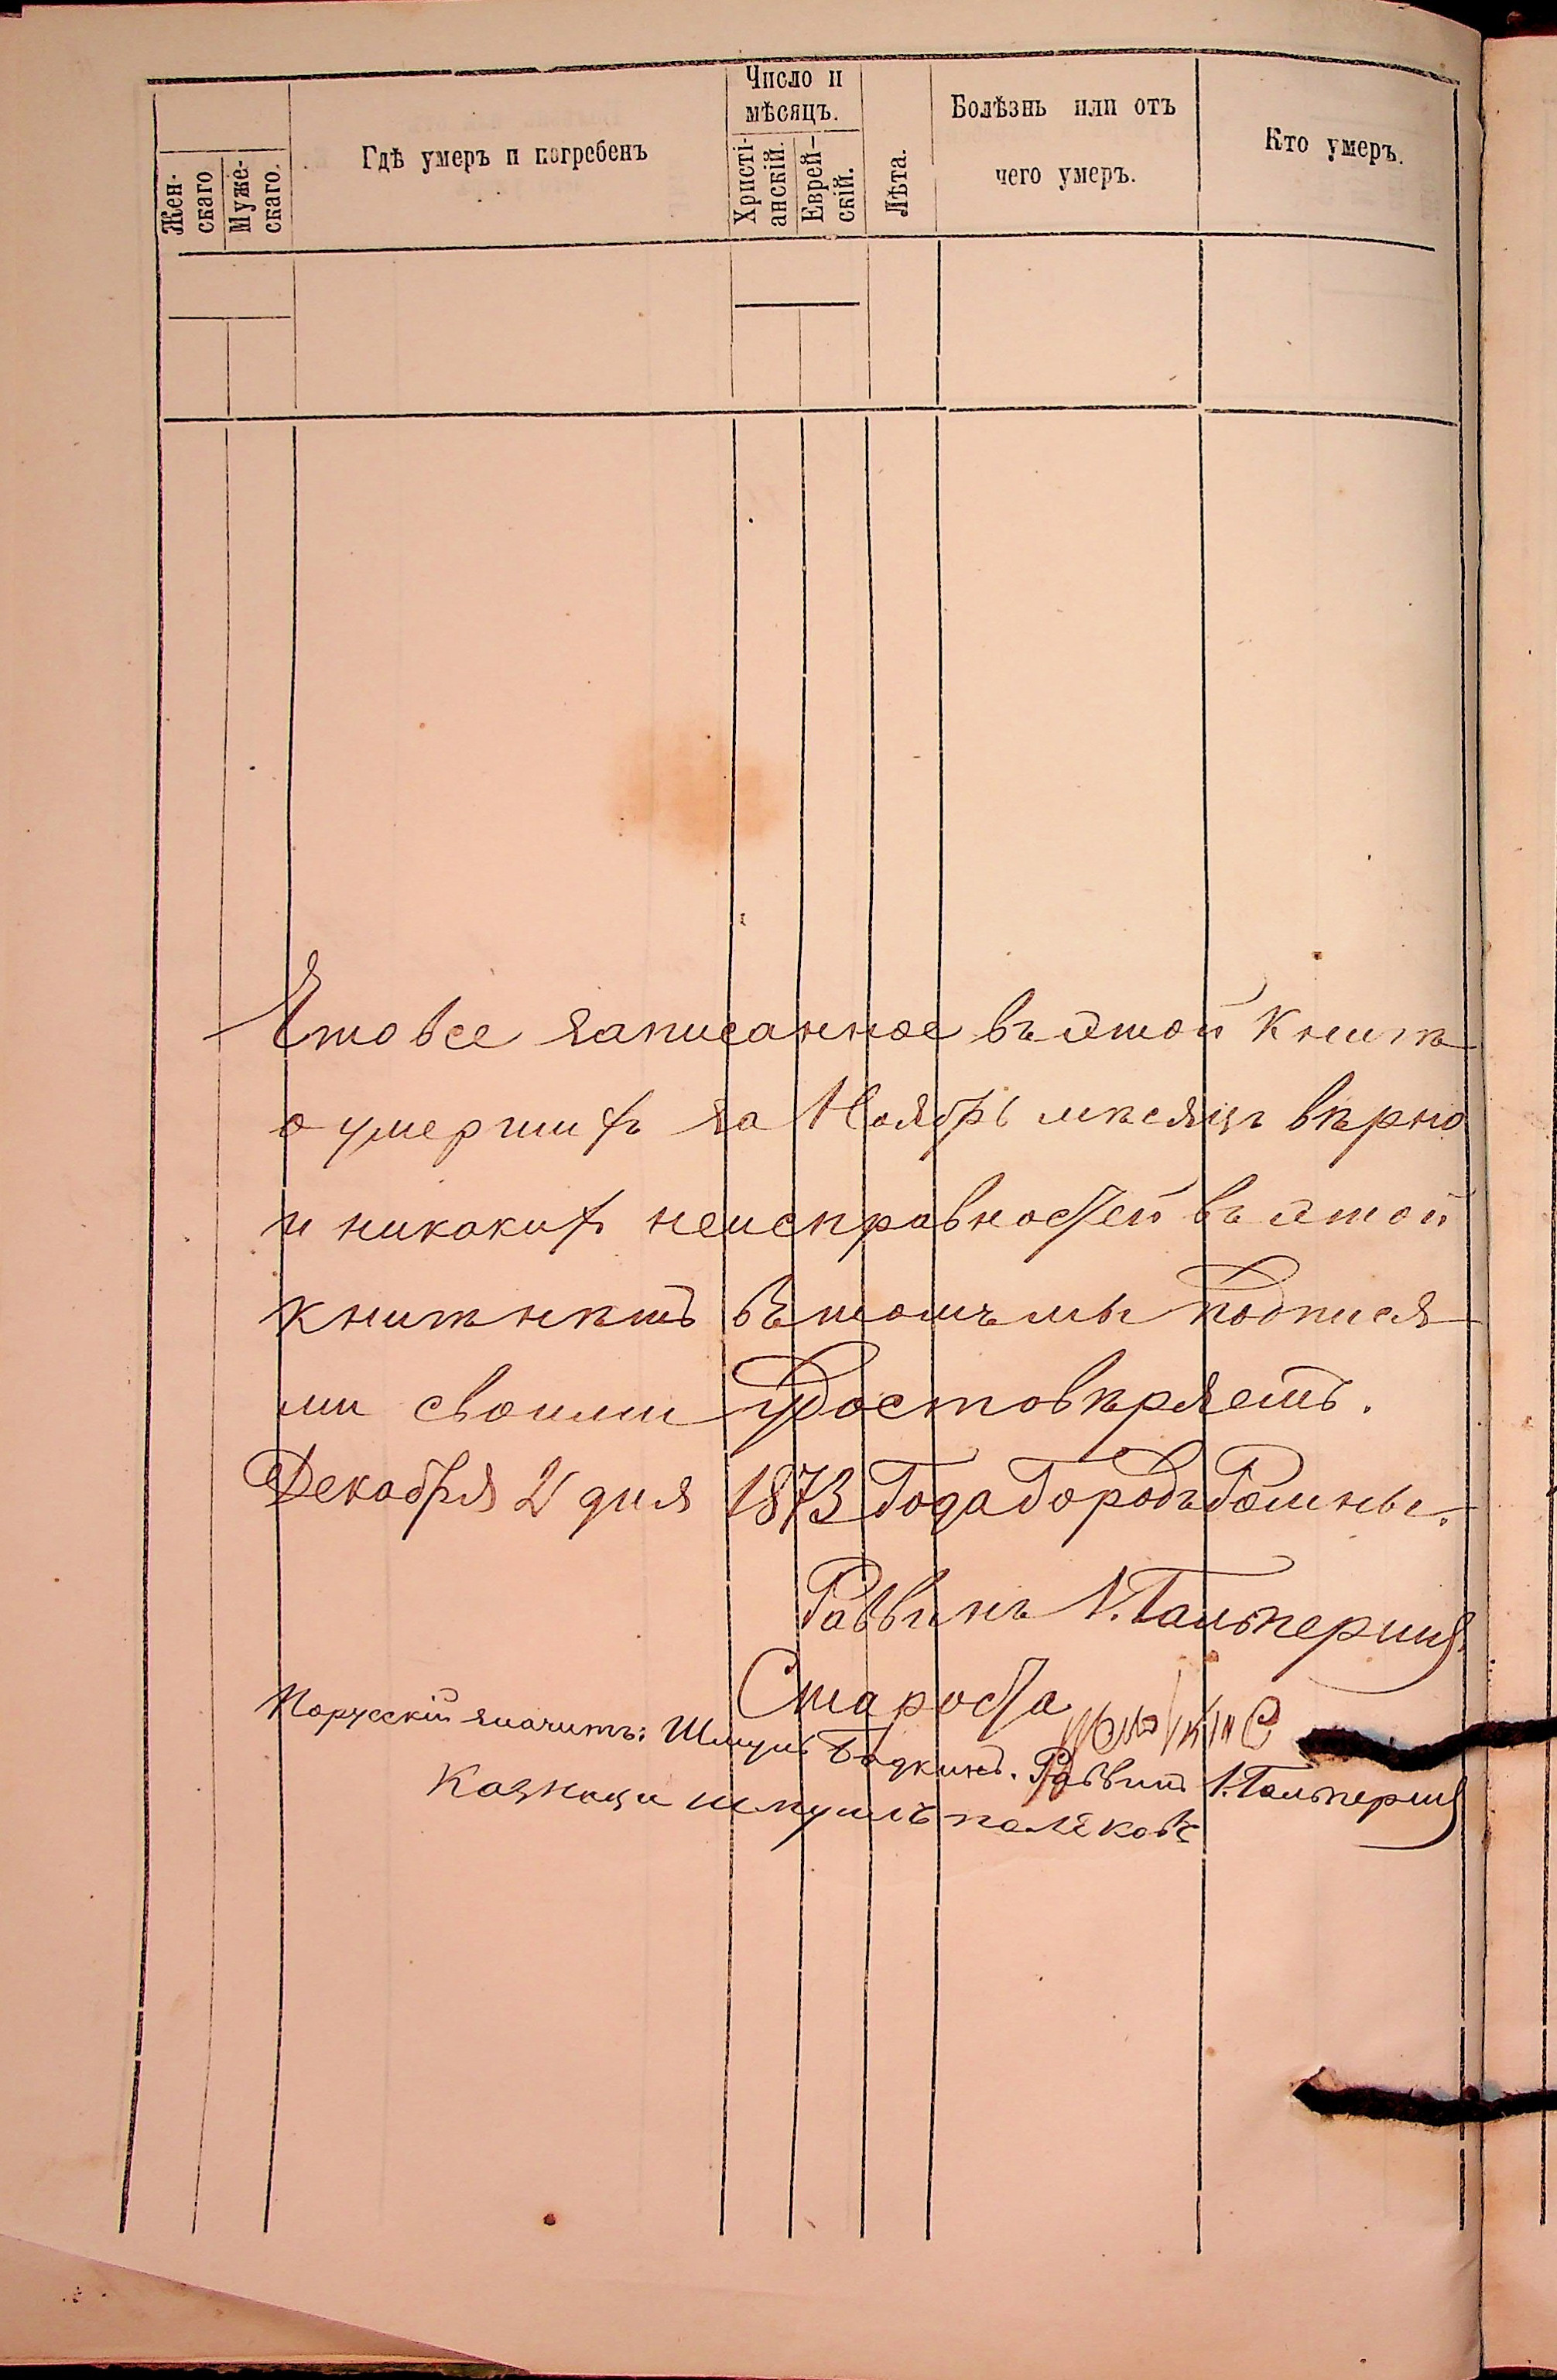 Число и
мѣсяцъ.
Жен-
скаго
Муже-
скаго.
Гдѣ умеръ и погребенъ
Христі-
анскій.
Еврей-
скій.
Лѣта.
Болѣзнь или отъ
чего умеръ.
Кто умеръ.
Что все записанное въ этой книгѣ
о умершихъ за Ноябрь мѣсяцъ вѣрно
и никакихъ неисправностей въ этой
книгѣ нѣтъ въ томъ мы подпися-
ми своими удостовѣряемъ.
Декабря 2 дня 1873 Года Городъ Ромны.
Раввинъ І. Гальперинъ
Староста
Порусскій значитъ: Шмуль Бодкинъ. Раввинъ І. Гальперинъ
Казначи шмуилъ